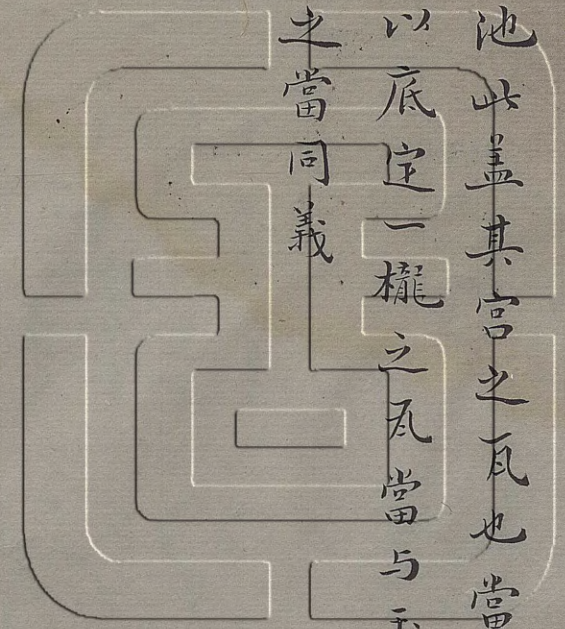 池此盖其宫之瓦也當
以底定一櫳之瓦當与
之當同義